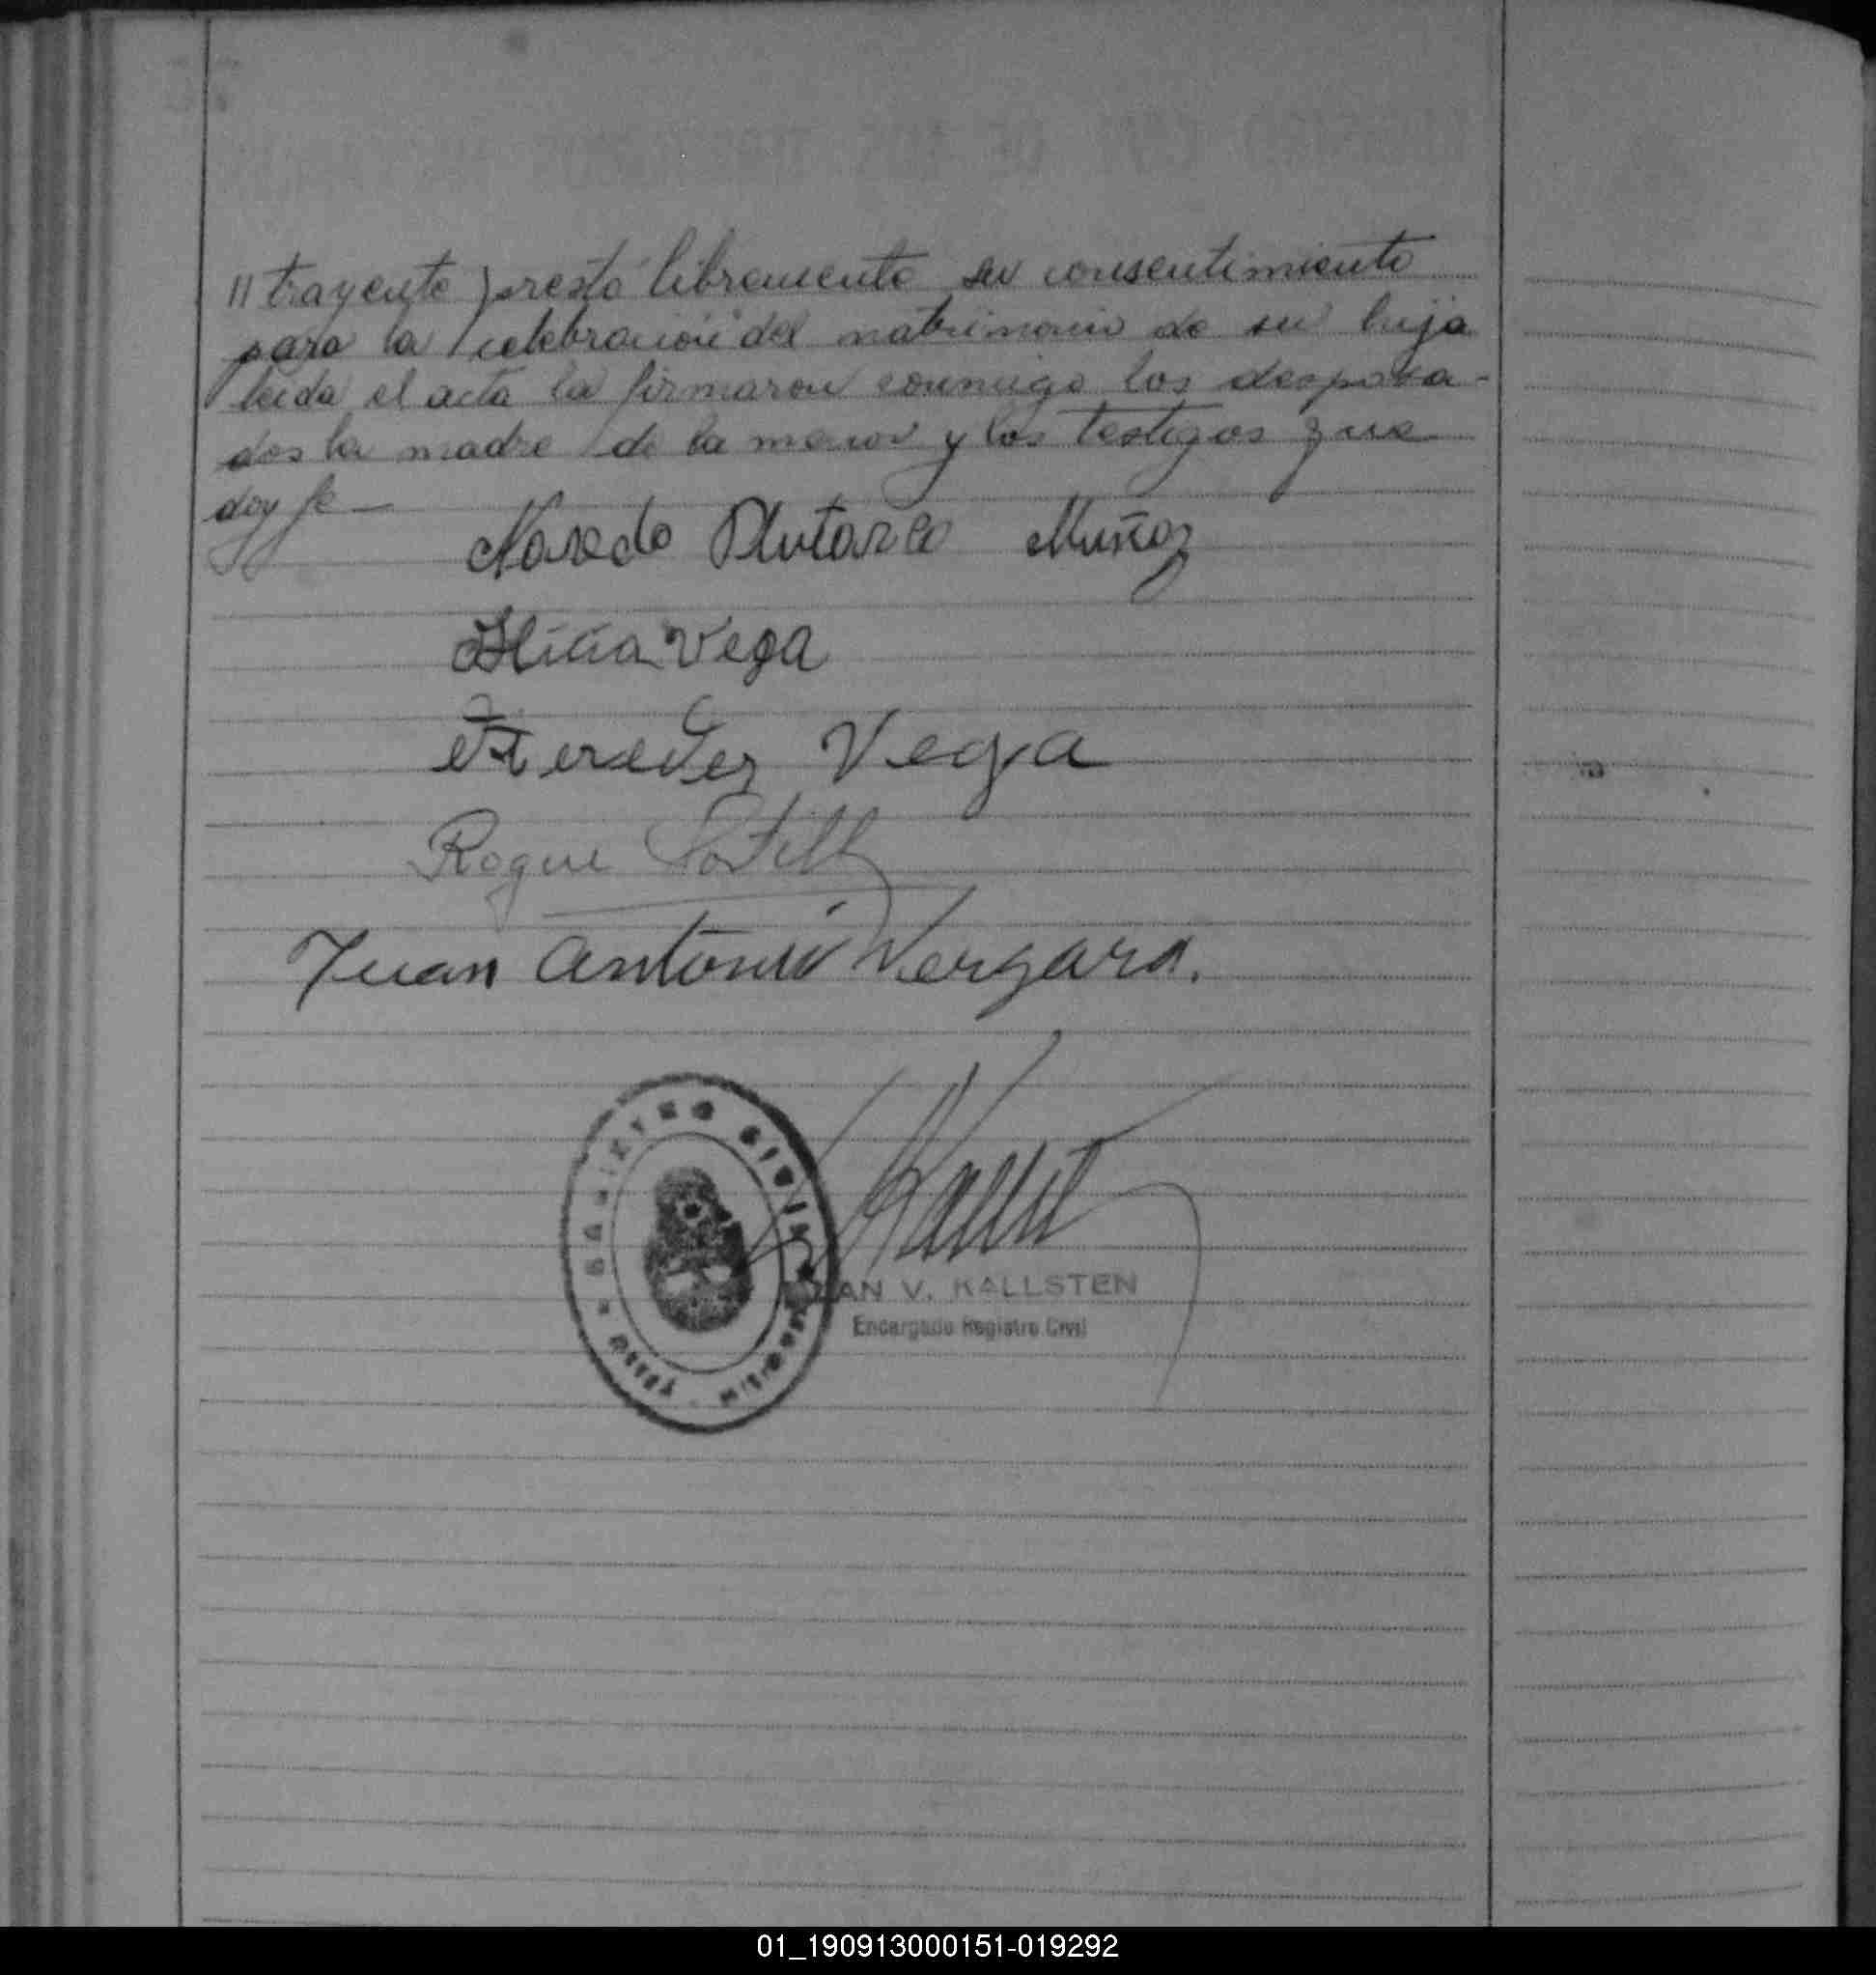 11 trayente presto libremente su consentimiento
para la celebracion del matrimonio de su hija
leida el acta la firmaron conmigo los desposa-
dos la madre de la menor y los testigos que
doy fe —
Plutarco Muñoz
Vega
Vega
Roque
Juan Antonio Vergara.
REGISTRO CIVIL
V. KALLSTEN
Encargado Registro Civil
01_190913000151-019292